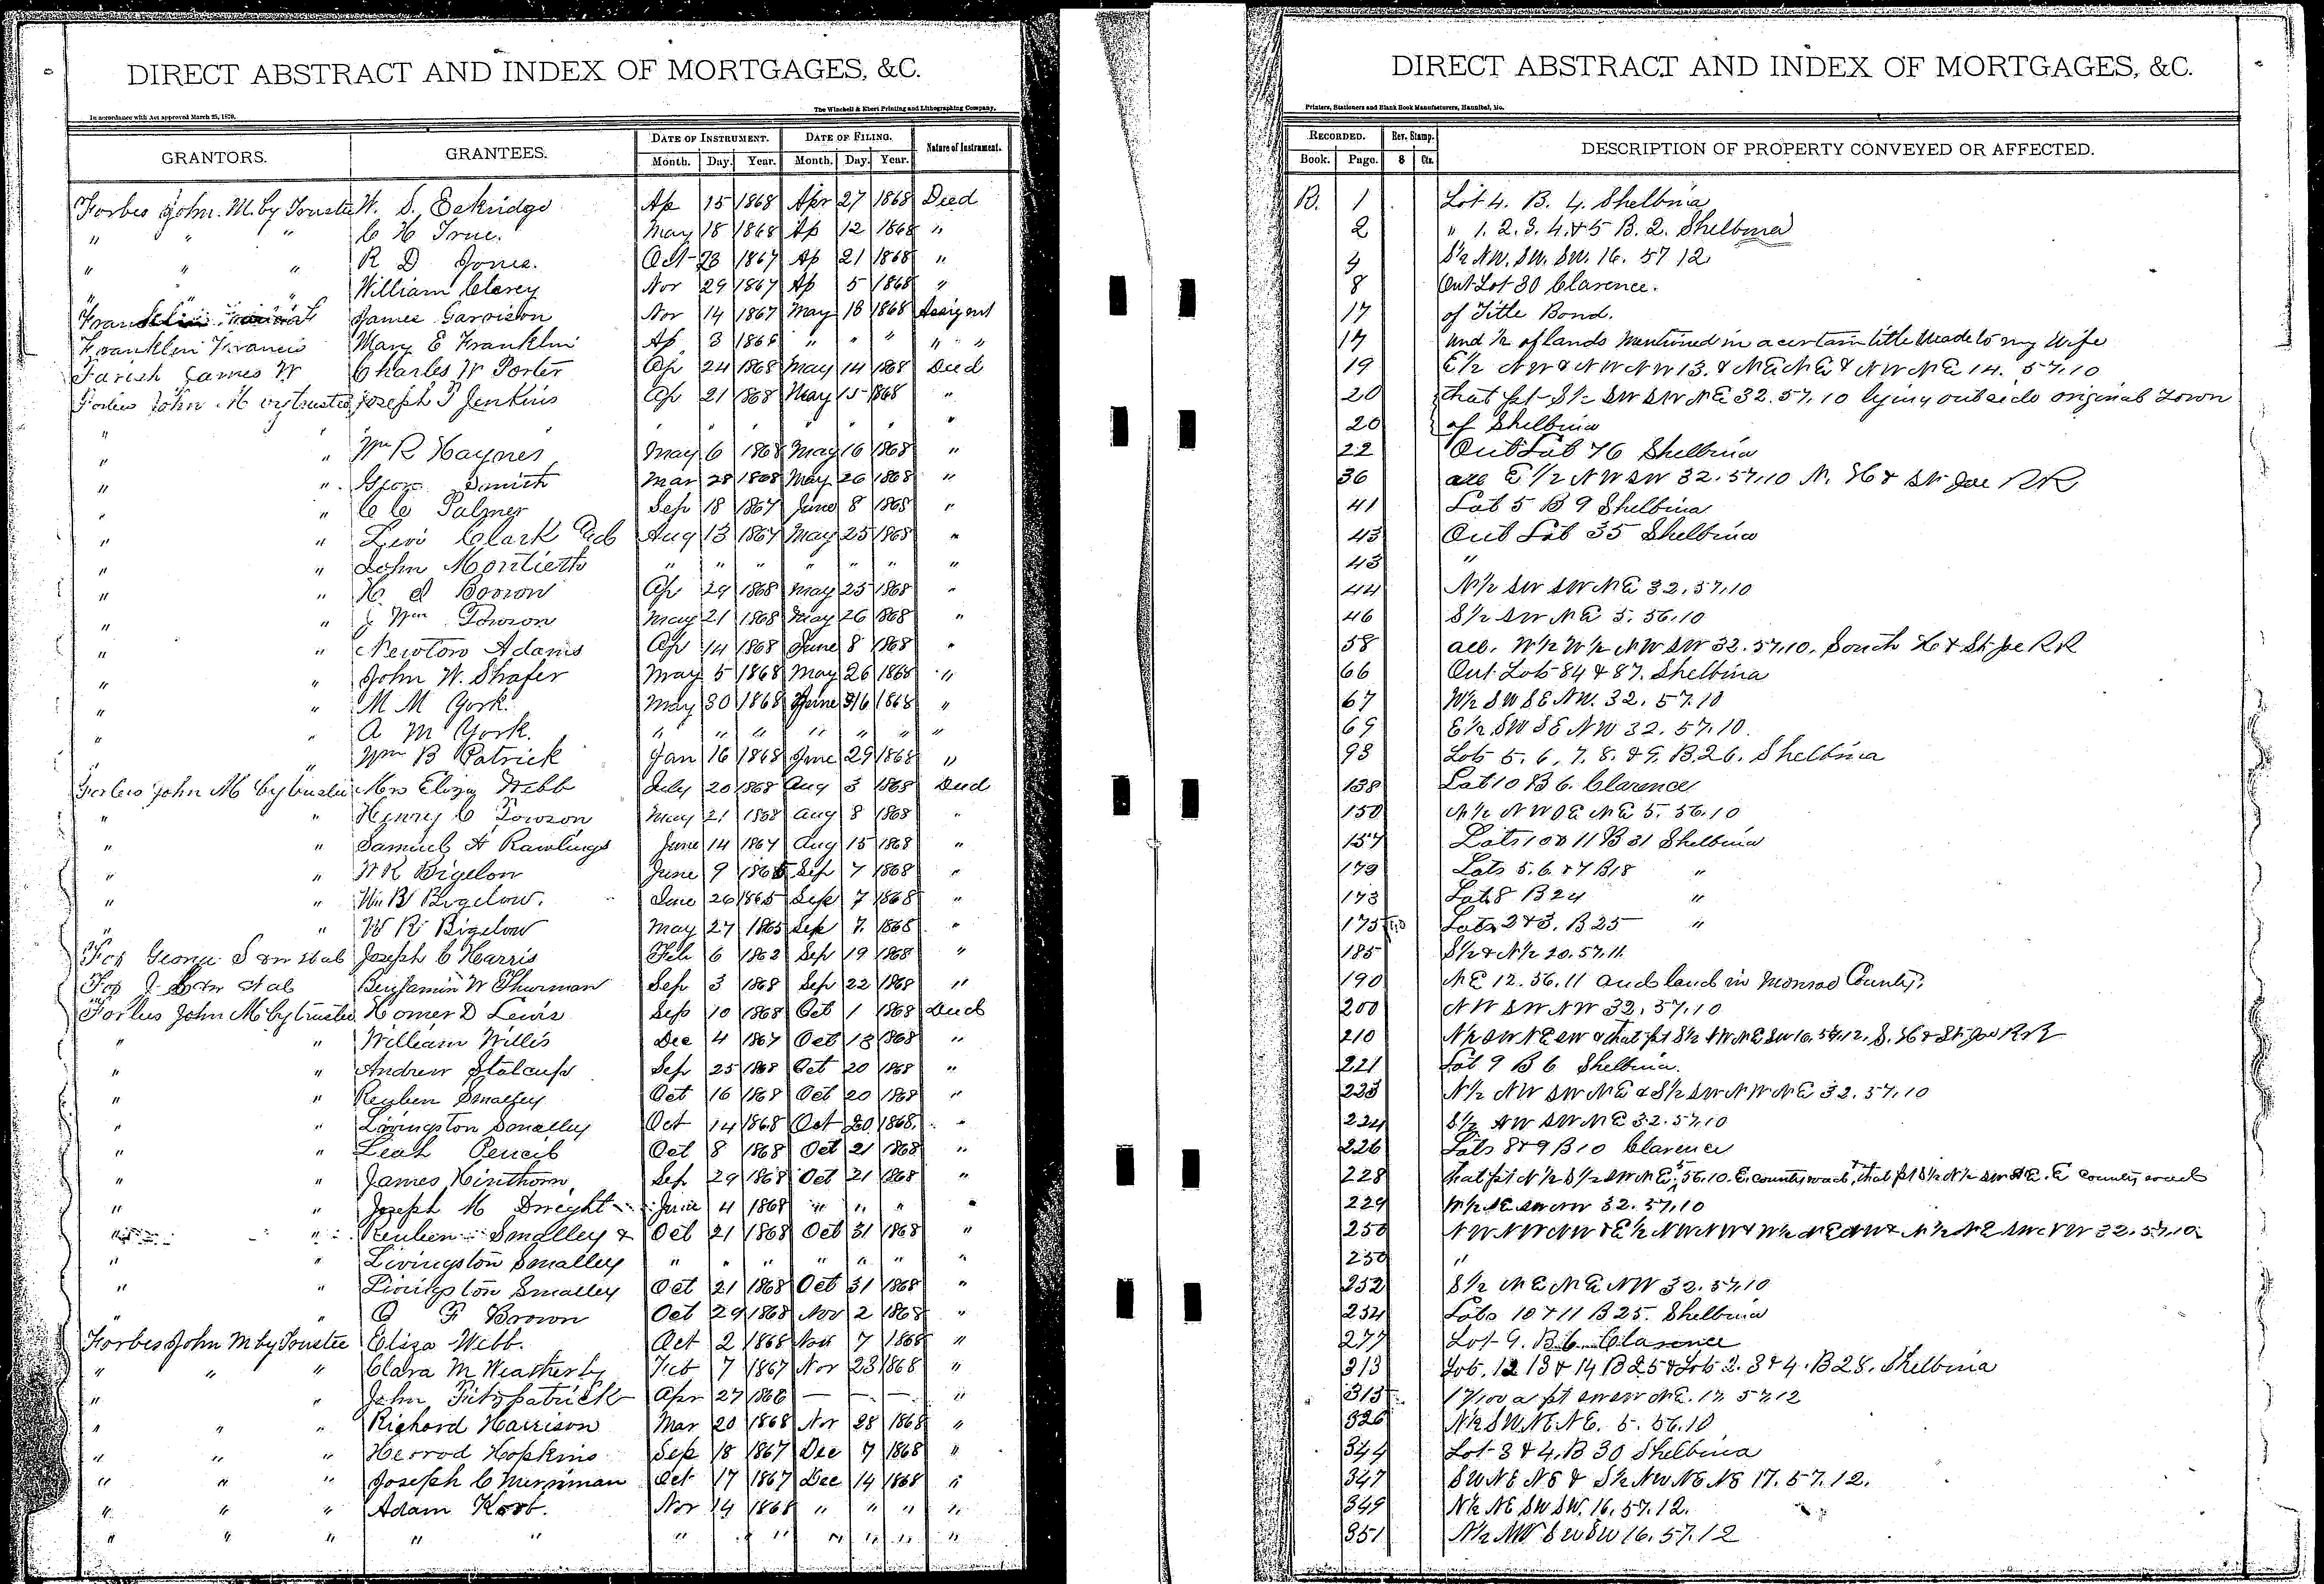 DIRECT ABSTRACT AND INDEX OF MORTGAGES, &C.
The Winchell & Ebert Printing and Lithographing Company,
In accordance with Act approved March 25, 1870.
GRANTORS. GRANTEES. DATE OF INSTRUMENT. DATE OF FILING. Nature of Instrument.
Month. Day. Year. Month. Day. Year.
Forbes John. M. by Trustee W. S. Eskridge Ap 15 1868 Apr 27 1868 Deed
" " " C H True. May 18 1868 Ap 12 1868 "
" " " R D Jones. Oct 23 1867 Ap 21 1868 "
" " " William Clarey Nov 29 1867 Ap 5 1868 "
James Garrison Nov 14 1867 May 18 1868 Assignt
Franklin Francis Mary E Franklin Ap 3 1868 " " " " "
Farish James W Charles W Porter Ap 24 1868 May 14 1868 Deed
Forbes John M by trustee Joseph T Jenkins Ap 21 1868 May 15 1868 "
" " " " " " " "
" " Wm R Haynes May 6 1868 May 16 1868 "
" " Smith Mar 28 1868 May 26 1868 "
" " C C Palmer Sep 18 1867 June 8 1868 "
" " Levi Clark Aug 13 1867 May 25 1868 "
" " John Montieth " " " " " " "
" " Ap 29 1868 May 25 1868 "
" " Wm Towson May 21 1868 May 26 1868 "
" " Newton Adams Ap 14 1868 June 8 1868 "
" " John W. Shafer May 5 1868 May 26 1868 "
" " M M York. May 30 1868 June 16 1868 "
" " A M York. " " " " " " "
" " Wm B Patrick Jan 16 1868 June 29 1868 "
Forbes John M by trustee Mrs Eliza Webb July 20 1868 Aug 3 1868 Deed
" " Henry C Towson May 21 1868 Aug 8 1868 "
" " Samuel H Rawlings June 14 1867 Aug 15 1868 "
" " W R Bigelow June 9 1865 Sep 7 1868 "
" " Wm B Bigelow. June 26 1865 Sep 7 1868 "
" " W R Bigelow May 27 1865 Sep 7. 1868 "
Fox George S et al Joseph C Harris Feb 6 1862 Sep 19 1868 "
Fox J et al Benjamin W Thurman Sep 3 1868 Sep 22 1868 "
Forbes John M by trustee Homer D Lewis Sep 10 1868 Oct 1 1868 Deed
" " William Willis Dec 4 1867 Oct 13 1868 "
" " Andrew Stalcup Sep 25 1868 Oct 20 1868 "
" " Reuben Smalley Oct 16 1868 Oct 20 1868 "
" " Livingston Smalley Oct 14 1868 Oct 20. 1868. "
" " Leah Pencib Oct 8 1868 Oct 21 1868 "
" " James Hinthorn Sep 29 1868 Oct 21 1868 "
" " Joseph H Dwight June 4 1868 " " " "
" " Reuben Smalley & Oct 21 1868 Oct 31 1868 "
" " Livingston Smalley " " " " " " "
" " Livingston Smalley Oct 21 1868 Oct 31 1868 "
" " O F Brown Oct 29 1868 Nov 2 1868 "
Forbes John M by Trustee Eliza Webb. Oct 2 1868 Nov 7 1868 "
" " " Clara M Weatherby Feb 7 1867 Nov 23 1868 "
" " John Fitzpatrick Apr 27 1868 — — — "
" " " Richard Harrison Mar 20 1868 Nov 28 1868 "
" " " Herrod Hopkins Sep 18 1867 Dec 7 1868 "
" " " Joseph C Merriman Oct 17 1867 Dec 14 1868 "
" " " Adam Koob. Nov 14 1868 " " " "
" " " " " " " " " " " "
DIRECT ABSTRACT AND INDEX OF MORTGAGES, &C.
Printers, Stationers and Blank Book Manufacturers, Hannibal, Mo.
RECORDED. Rev. Stamp. DESCRIPTION OF PROPERTY CONVEYED OR AFFECTED.
Book. Page. $ Cts.
B. 1 Lot 4. B. 4. Shelbina
2 " 1. 2. 3. 4. & 5 B. 2. Shelbina
4 S½ NW. SW. SW. 16. 57 12
8 Out Lot 30 Clarence.
17 of Title Bond.
17 und ½ of lands mentioned in a certain title made to my Wife
19 E½ NW & NW NW 13. & NE NE & NW NE 14. 57.10
20 that pt S½ SW SW NE 32. 57. 10 lying outside original Town
20 of Shelbina
22 Out Lot 76 Shelbina
36 all E½ NW SW 32. 57.10 N. H & St Joe RR
41 Lot 5 B 9 Shelbina
43 Out Lot 35 Shelbina
43 "
44 N½ SW SW NE 32. 57.10
46 S½ SW NE 5. 56.10
58 all. W½ W½ NW SW 32. 57.10. South H & St Joe RR
66 Out Lots 84 & 87. Shelbina
67 W½ SW SE NW. 32. 57.10
69 E½ SW SE NW 32. 57.10.
93 Lots 5. 6. 7. 8. & 9. B. 26. Shelbina
138 Lot 10 B 6. Clarence
150 N½ NW SE NE 5. 56.10
157 Lots 10 & 11 B 31 Shelbina
173 Lots 5. 6. & 7 B 18 "
173 Lot 8 B 24 "
175 Lots 2 & 3. B 25 "
185 S½ & N½ 20. 57. 11.
190 NE 12. 56. 11 and land in Monroe County.
200 NW SW NW 32. 57.10
210 N½ SW NE SW & that pt S½ NW NE SW 16. 57.12. S. H & St. Joe RR
221 Lot 9 B 6 Shelbina.
223 N½ NW SW NE & S½ SW NW NE 32. 57.10
224 S½ NW SW NE 32. 57.10
226 Lots 8 & 9 B 10 Clarence
228 that pt N½ S½ SW NE 5 56.10. E. county road, & that pt S½ N½ SW NE. E county road
229 W½ SE SW NW 32. 57.10
250 NW NW NW & E½ NW NW & W½ NE NW & N½ NE SW NW 32. 57.10
250 "
252 S½ NE NE NW 32. 57.10
254 Lots 10 & 11 B 25. Shelbina
277 Lot 9. B 6. Clarence
313 Lots. 12 13 & 14 B 25 & Lots 2. 3 & 4. B 28. Shelbina
315 pt SW SW NE. 17 57.12
326 N½ SW NE NE. 5. 56.10
344 Lot 3 & 4. B 30 Shelbina
347 SW NE NE & S½ NW NE NE 17. 57. 12.
349 N½ NE SW SW. 16. 57. 12.
351 N½ NW SW SW 16. 57. 12